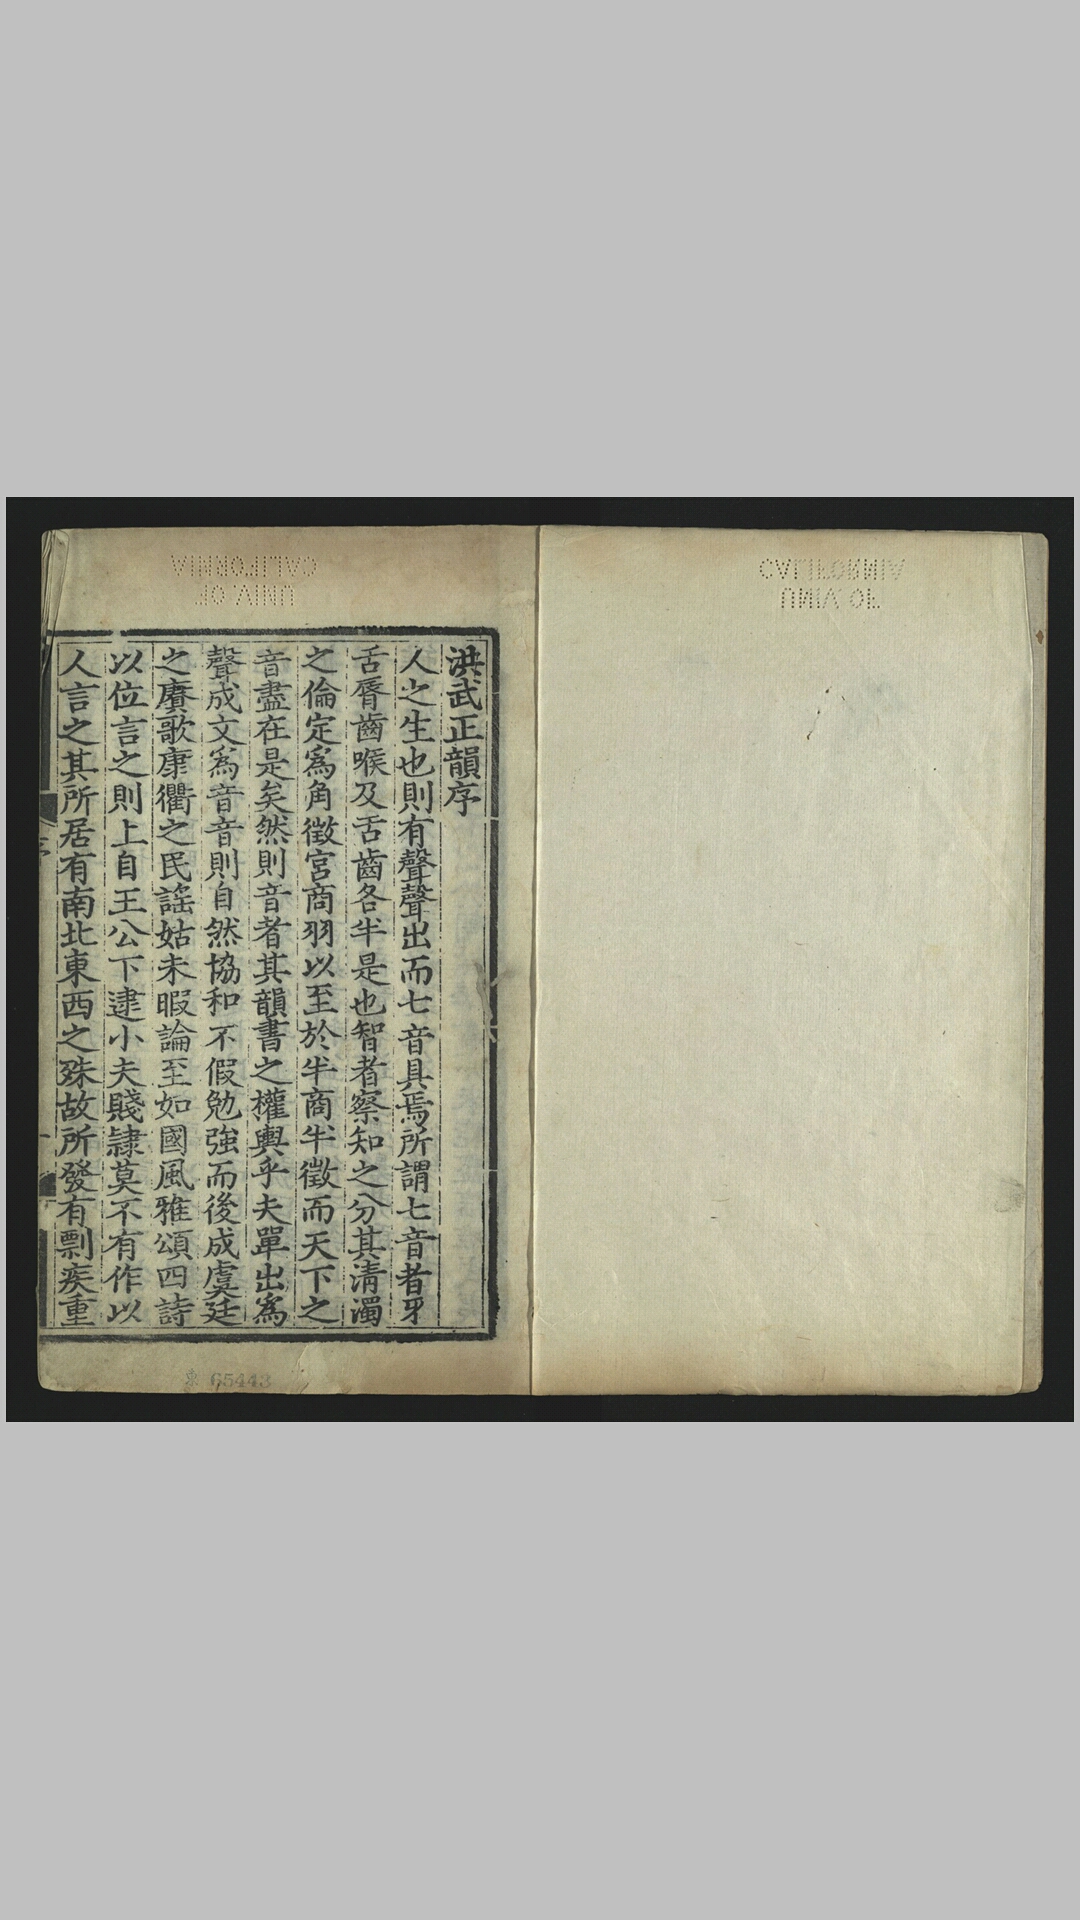 洪武正韻序
人之生也則有聲聲出而七音具焉所謂七音者牙
舌脣齒喉及舌齒各半是也智者察知之分其清濁
之倫定為角徵宮商羽以至於半商半徵而天下之
音盡在是矣然則音者其韻書之權輿乎夫單出為
聲成文為音音則自然協和不假勉強而後成虞廷
之賡歌康衢之民謠姑未暇論至如國風雅頌四詩
以位言之則上自王公下逮小夫賤隸莫不有作以
人言之其所居有南北東西之殊故所發有剽疾重
CALIFORNIA
UNIV. OF
CALIFORNIA
UNIV. OF
東 65443